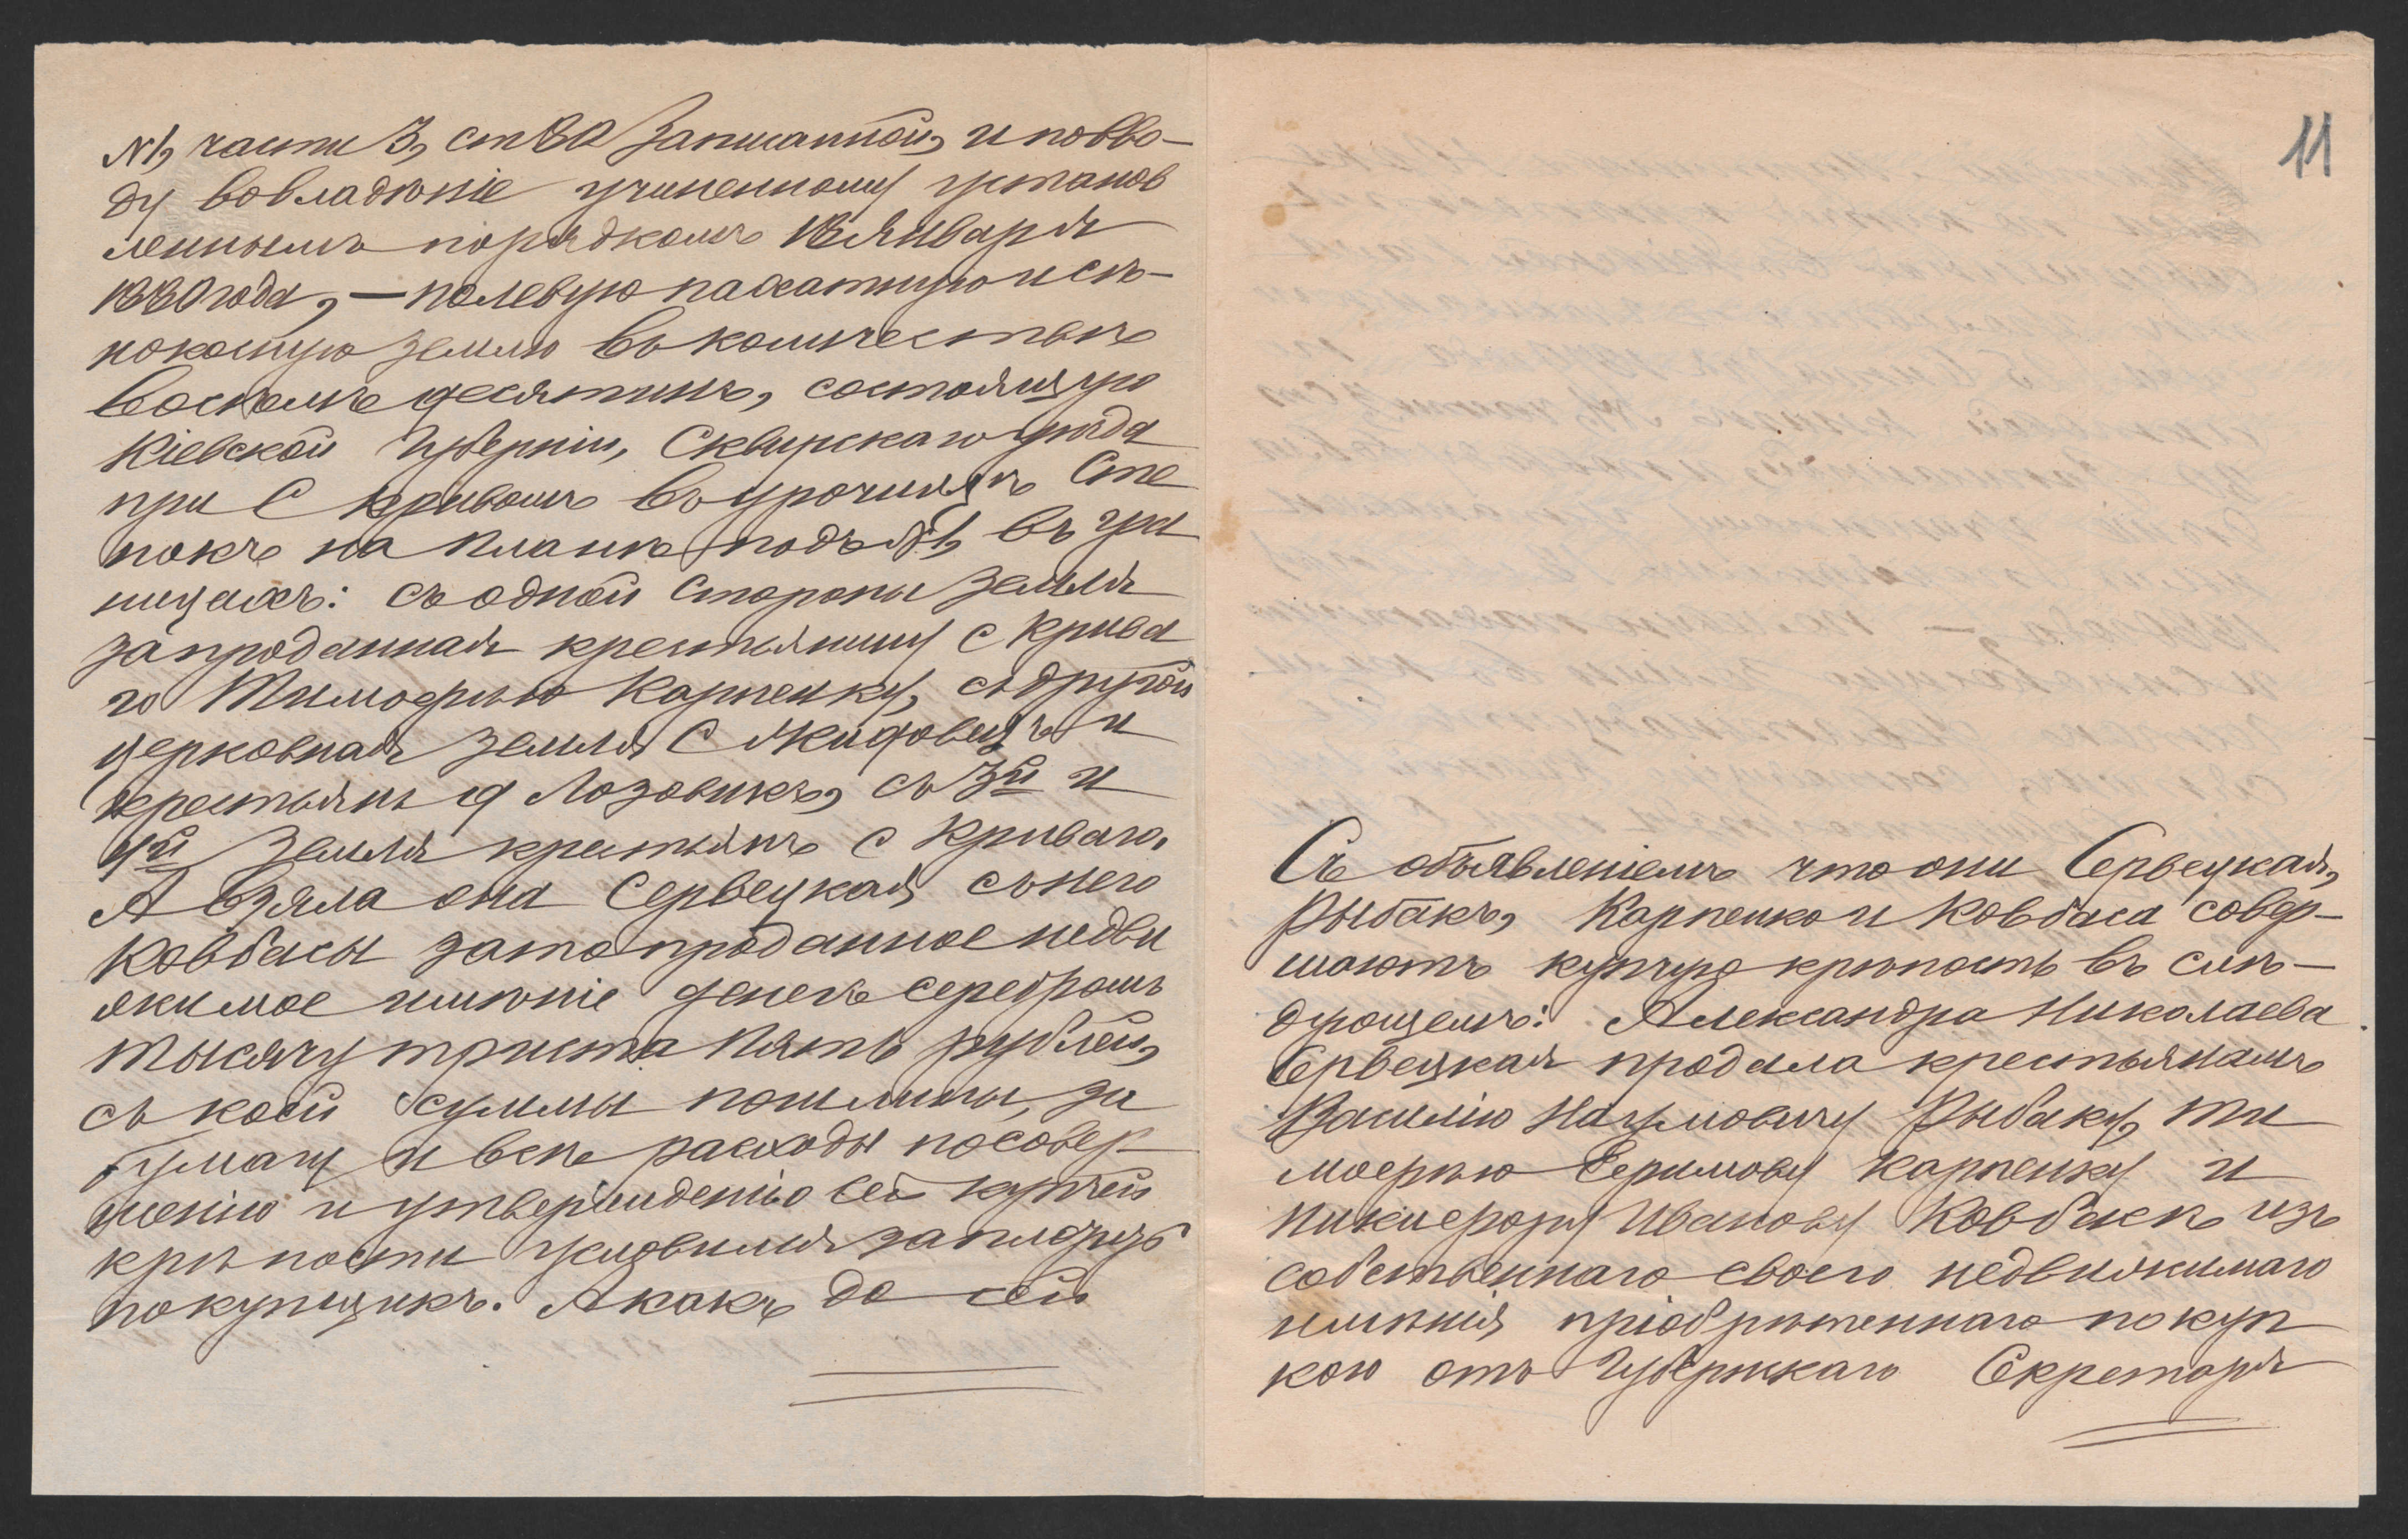 №1, части 3, ст 80 записанной, и по вво-
ду во владѣніе учиненному установ
леннымъ порядкомъ 18 Января
1880 года, — полевую пахатную и сѣ-
нокосную землю въ количествѣ
восемь десятинъ, состоящую
Кіевской Губерніи, Сквирскаго уѣзда
при С Кривомъ въ урочищѣ Сте
покъ на планѣ подъ №1, въ гра
ницахъ: съ одной стороны земля
запроданная крестьянину с Крива
го Тимофѣю Карпенку, съ другой
церковная земля С Жидовецъ и
крестьянъ д Лозовикъ, съ 3й и
4й земля крестьянъ с Криваго.
А взяла она Сервецкая съ него
Ковбасы за то проданное недви
жимое имѣніе денегъ серебромъ
тысячу триста пять рублей,
съ коей суммы пошлины, за
бумагу и всѣ расходы по совер-
шенію и утвержденію сей купчей
крѣпости условился заплатить
покупщикъ. А какъ до сей
11
Съ объявленіемъ что они Сервецкая,
Рыбакъ, Карпенко и Ковбаса совер-
шаютъ купчую крѣпость въ слѣ-
дующемъ: Александра Николаева
Сервецкая продала крестьянамъ
Василію Наумовичу Рыбаку, Ти
мофѣю Ефимову Карпенку и
Никифору Иванову Ковбасѣ изъ
собственнаго своего недвижимаго
имѣнія пріобрѣтеннаго покуп
кою отъ Губернскаго Секретаря